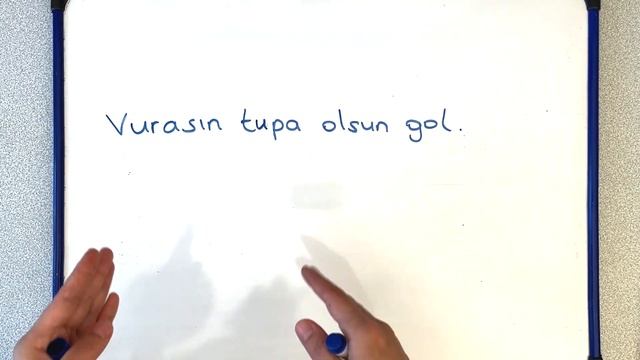 Vurasın tupa olsun gol.